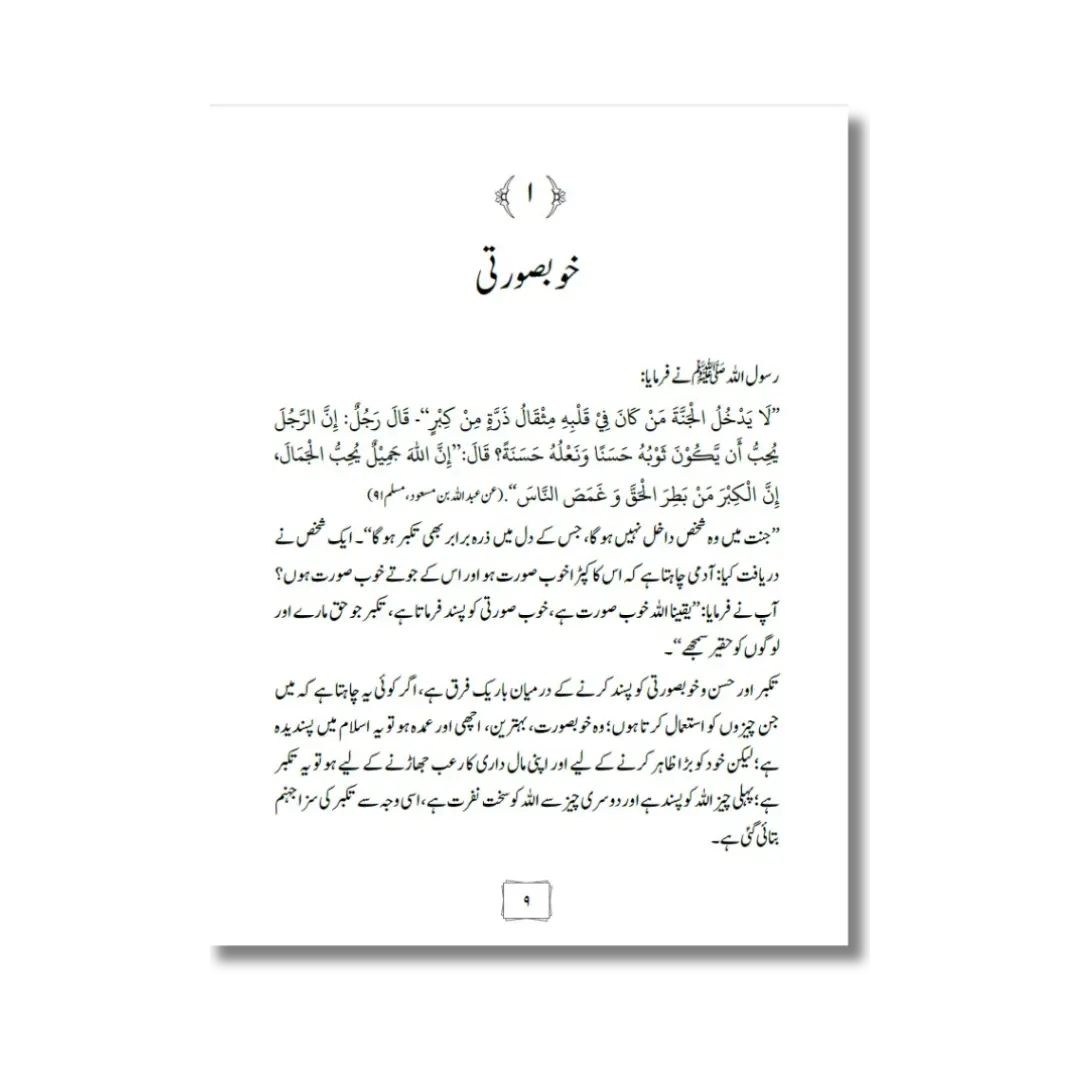 ﴿ ۱ ﴾
خوبصورتی
رسول اللہ ﷺ نے فرمایا:
”لَا يَدْخُلُ الْجَنَّةَ مَنْ كَانَ فِيْ قَلْبِهِ مِثْقَالُ ذَرَّةٍ مِنْ كِبْرٍ“۔ قَالَ رَجُلٌ: إِنَّ الرَّجُلَ
يُحِبُّ أَن يَّكُوْنَ ثَوْبُهُ حَسَنًا وَنَعْلُهُ حَسَنَةً؟ قَالَ:”إِنَّ اللّٰهَ جَمِيْلٌ يُحِبُّ الْجَمَالَ،
إِنَّ الْكِبْرَ مَنْ بَطِرَ الْحَقَّ وَ غَمَصَ النَّاسَ“.(عن عبد اللہ بن مسعود، مسلم ۹۱)
”جنت میں وہ شخص داخل نہیں ہوگا، جس کے دل میں ذرہ برابر بھی تکبر ہوگا“۔ ایک شخص نے
دریافت کیا: آدمی چاہتا ہے کہ اس کا کپڑا خوب صورت ہو اور اس کے جوتے خوب صورت ہوں؟
آپ نے فرمایا: ”یقینا اللہ خوب صورت ہے، خوب صورتی کو پسند فرماتا ہے، تکبر جو حق مارے اور
لوگوں کو حقیر سمجھے“۔
تکبر اور حسن و خوبصورتی کو پسند کرنے کے درمیان باریک فرق ہے، اگر کوئی یہ چاہتا ہے کہ میں
جن چیزوں کو استعمال کرتا ہوں؛ وہ خوبصورت، بہترین، اچھی اور عمدہ ہو تو یہ اسلام میں پسندیدہ
ہے؛ لیکن خود کو بڑا ظاہر کرنے کے لیے اور اپنی مال داری کا رعب جھاڑنے کے لیے ہو تو یہ تکبر
ہے؛ پہلی چیز اللہ کو پسند ہے اور دوسری چیز سے اللہ کو سخت نفرت ہے، اسی وجہ سے تکبر کی سزا جہنم
بتائی گئی ہے۔
۹